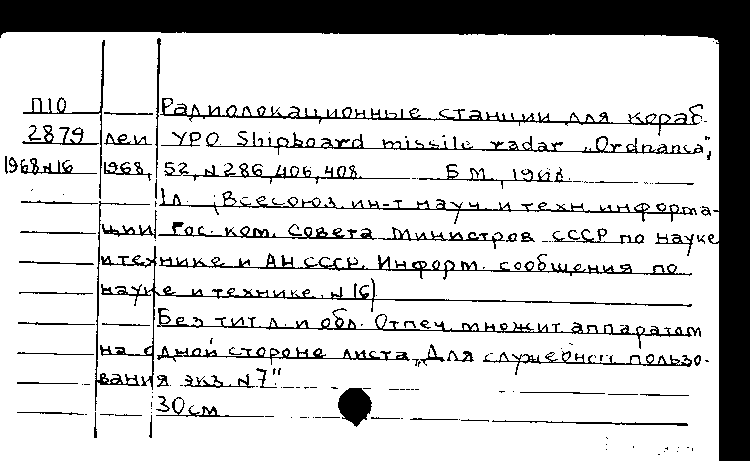 П10 Радиолокационные станции для кораб-
2879 лей УРО Shipboard missile radar „Ordnance",
1968 N16 1968, 52, N 286, 406, 408. Б. М., 1968.
1л. (Всесоюз. ин-т науч. и техн. информа-
ции Гос. ком. Совета Министров СССР по науке
и технике и АН СССР. Информ. сообщения по
науке и технике. N 16)
Без тит. л. и обл. Отпеч. множит. аппаратом
на одной стороне листа. „Для служебного пользо-
вания экз. N 7"
30 см.